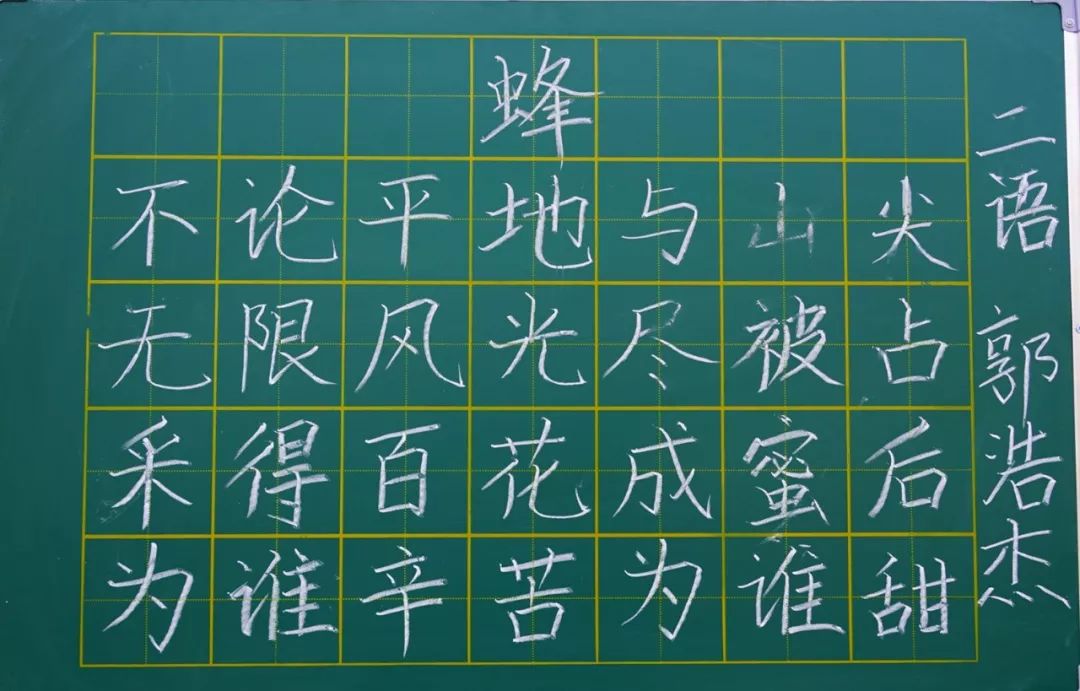 蜂
不论平地与山尖
无限风光尽被占
采得百花成蜜后
为谁辛苦为谁甜
二语 郭浩杰